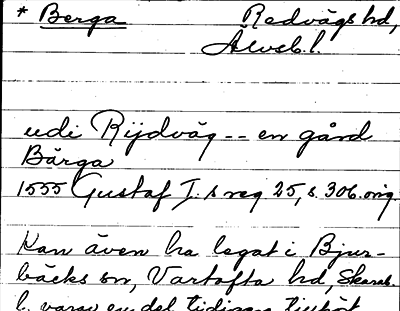 * Berga Redvägs hd,
Älvsb. l.
udi Rijdväg -- en gård
Bärga
1555 Gustaf I. s reg 25, s. 306. orig.
Kan även ha legat i Bjur-
bäcks sn, Vartofta hd, Skarab.
l. varav en del tidigare